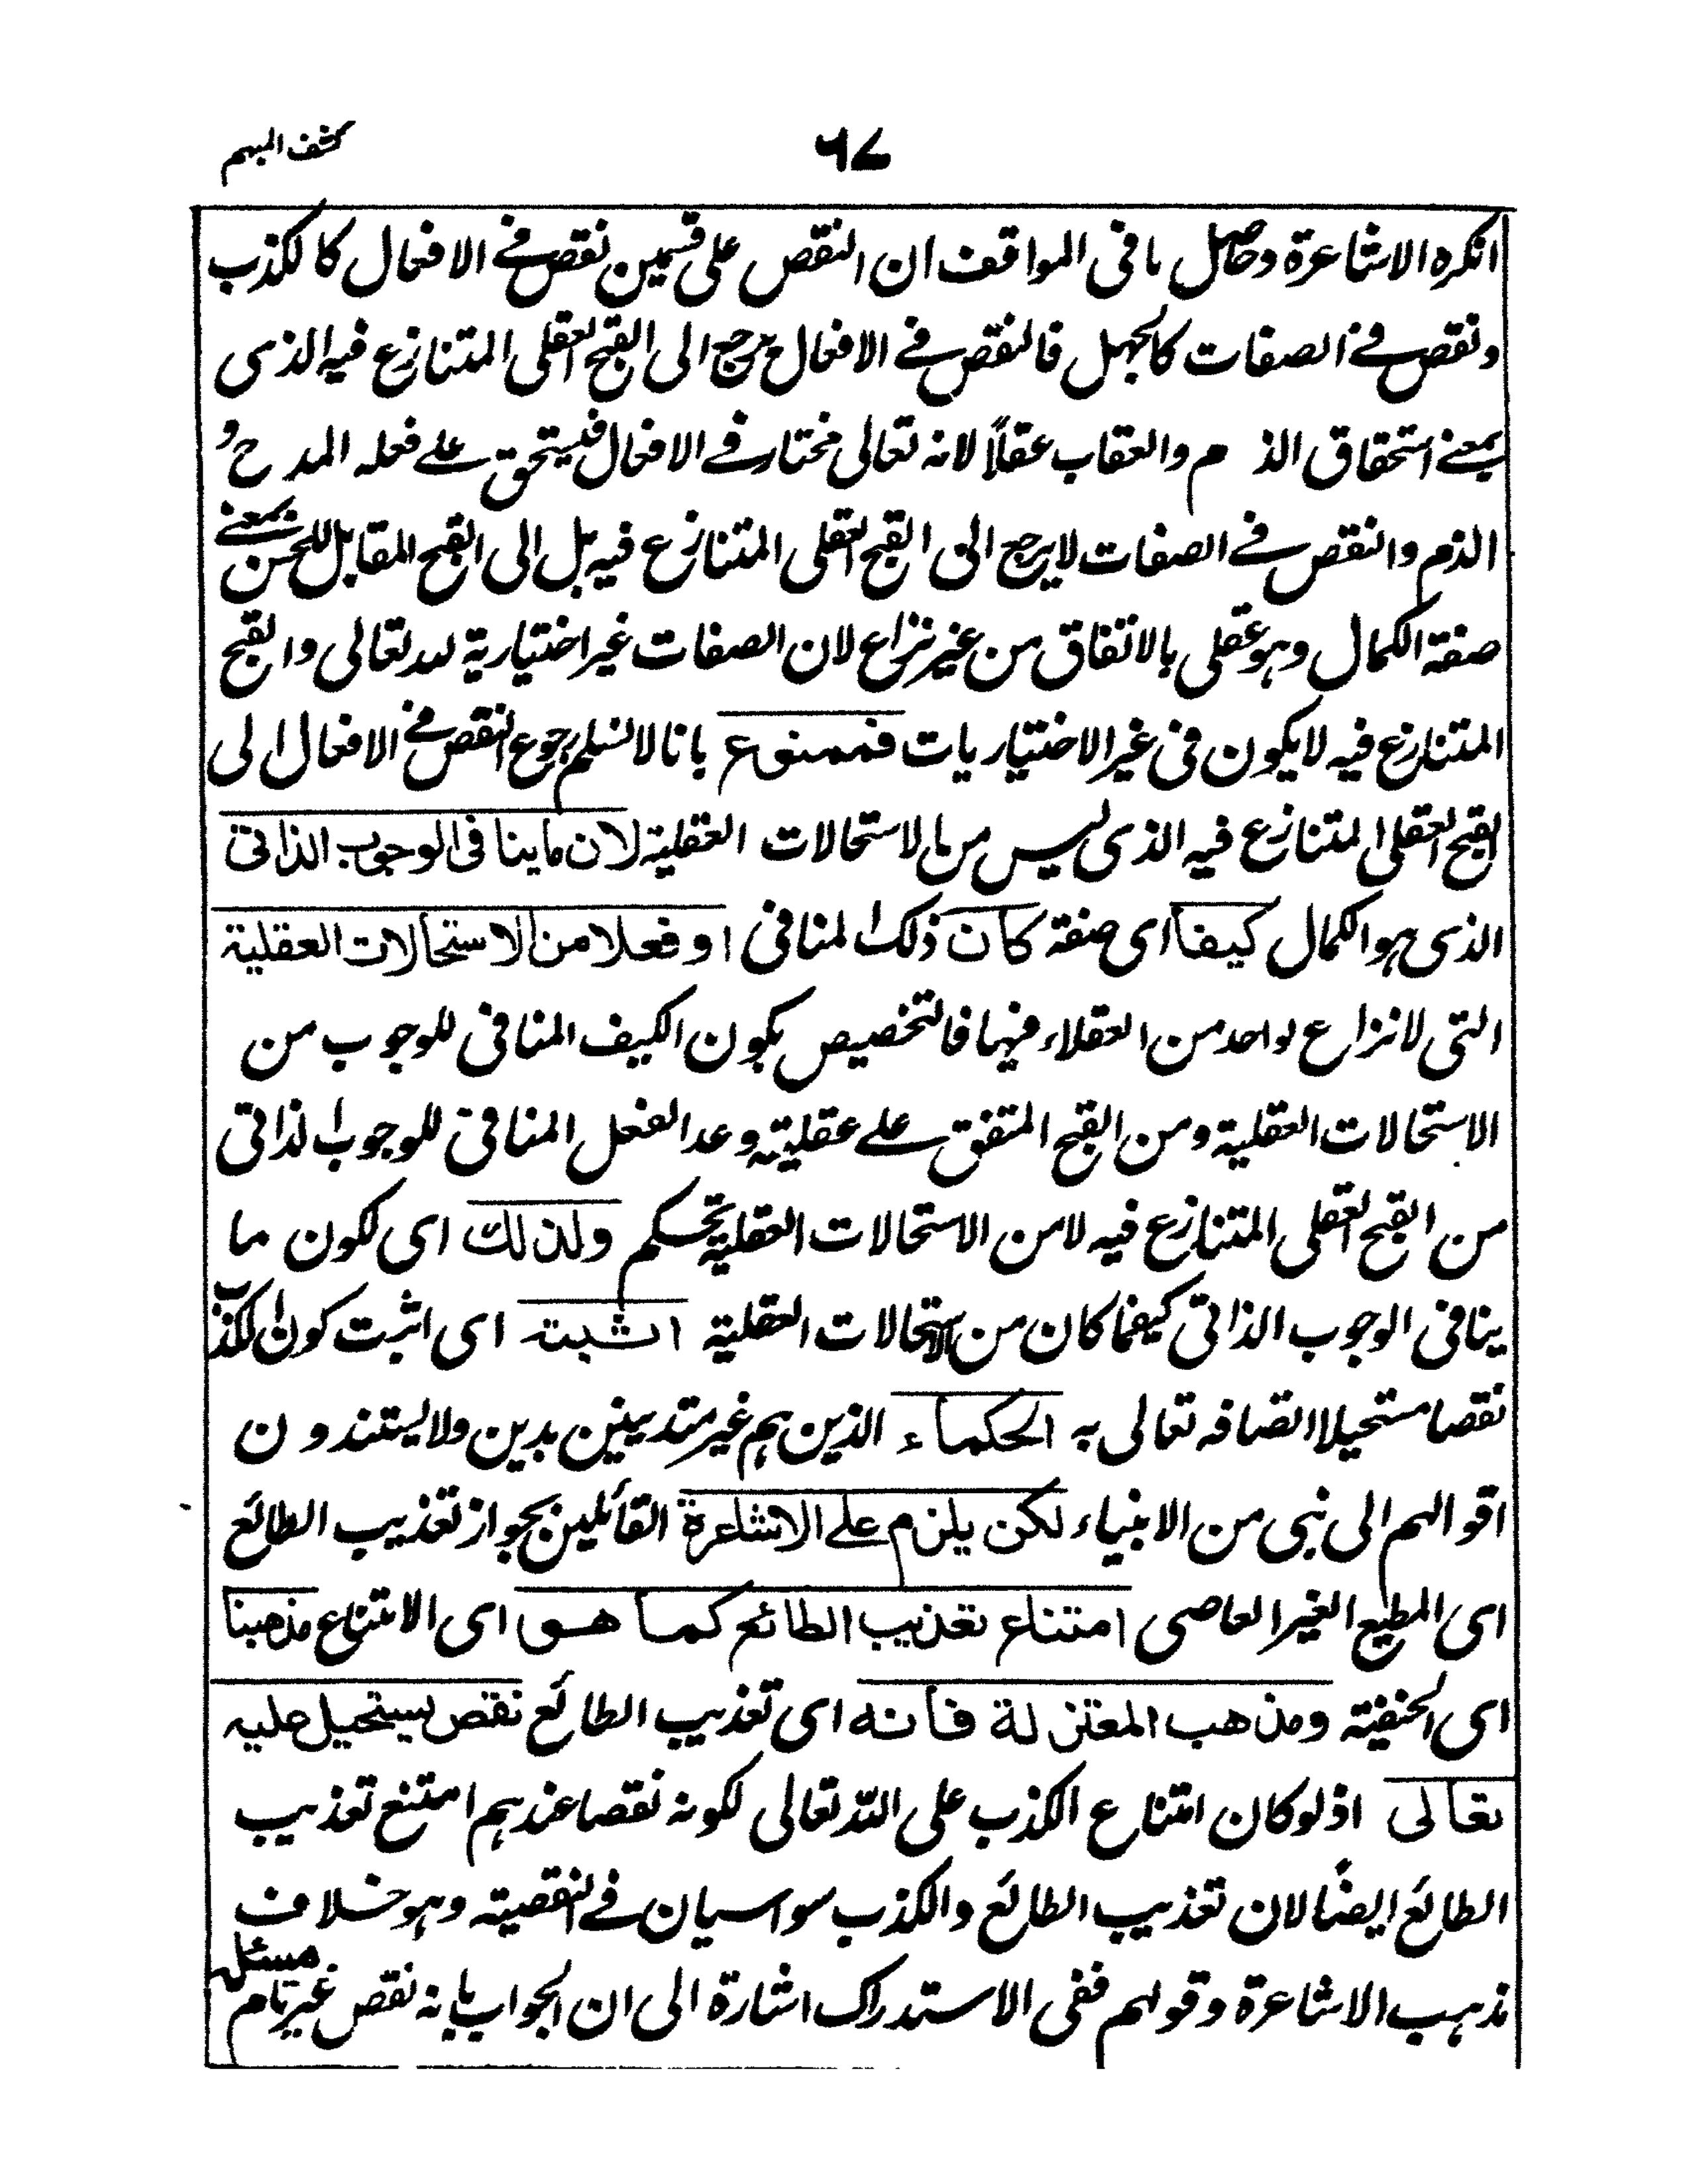 كشف المبهم
٦٧
انكره الاشاعرة وحاصل ما فى المواقف ان النقص على قسمين نقص فى الافعال كالكذب
ونقص فى الصفات كالجهل فالنقص فى الافعال يرجع الى القبح العقلى المتنازع فيه الذى
بمعنى استحقاق الذم والعقاب عقلاً لانه تعالى مختار فى الافعال فيستحق على فعله المدح و
الذم والنقص فى الصفات لا يرجع الى القبح العقلى المتنازع فيه بل الى القبح المقابل للحسن بمعنى
صفة الكمال وهو عقلى بالاتفاق من غير نزاع لان الصفات غير اختيارية لله تعالى والقبح
المتنازع فيه لا يكون فى غير الاختياريات فممنوع بانا لا نسلم رجوع النقص فى الافعال الى
القبح العقلى المتنازع فيه الذى ليس من الاستحالات العقلية لان ما ينافى الوجوب الذاتى
الذى هو الكمال كيفا اى صفة كان ذلك المنافى او فعلا من الاستحالات العقلية
التى لا نزاع لواحد من العقلاء فيها فالتخصيص بكون الكيف المنافى للوجوب من
الاستحالات العقلية ومن القبح المتفق على عقليته وعد الفعل المنافى للوجوب الذاتى
من القبح العقلى المتنازع فيه لا من الاستحالات العقلية تحكم ولذلك اى لكون ما
ينافى الوجوب الذاتى كيفما كان من الاستحالات العقلية اثبته اى اثبت كون الكذب
نقصا مستحيلا اتصافه تعالى به الحكماء الذين هم غير متدينين بدين ولا يستندون
اقوالهم الى نبى من الانبياء لكن يلزم على الاشاعرة القائلين بجواز تعذيب الطائع
اى المطيع الغير العاصى امتناع تعذيب الطائع كما هو اى الامتناع مذهبنا
اى الحنفية ومذهب المعتزلة فانه اى تعذيب الطائع نقص يستحيل عليه
تعالى اذ لو كان امتناع الكذب على الله تعالى لكونه نقصا عندهم امتنع تعذيب
الطائع ايضًا لان تعذيب الطائع والكذب سواسيان فى النقصية وهو خلاف
مذهب الاشاعرة وقولهم ففى الاستدراك اشارة الى ان الجواب بانه نقص غير تام مسئلة